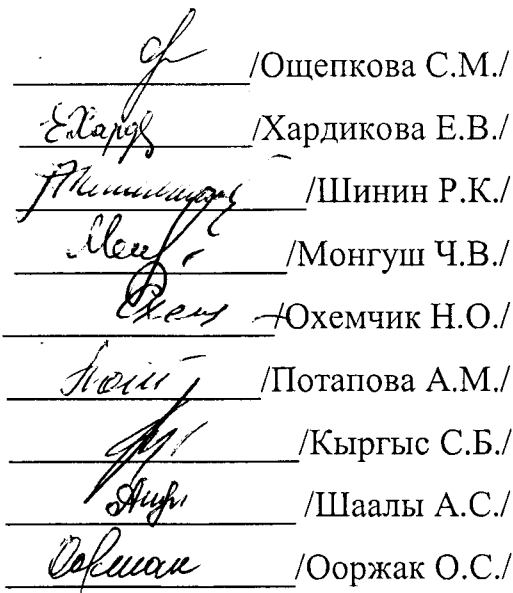 /Ощепкова С.М./
/Хардикова Е.В./
/Шинин Р.К./
/Монгуш Ч.В./
/Охемчик Н.О./
/Потапова А.М./
/Кыргыс С.Б./
/Шаалы А.С./
/Ооржак О.С./